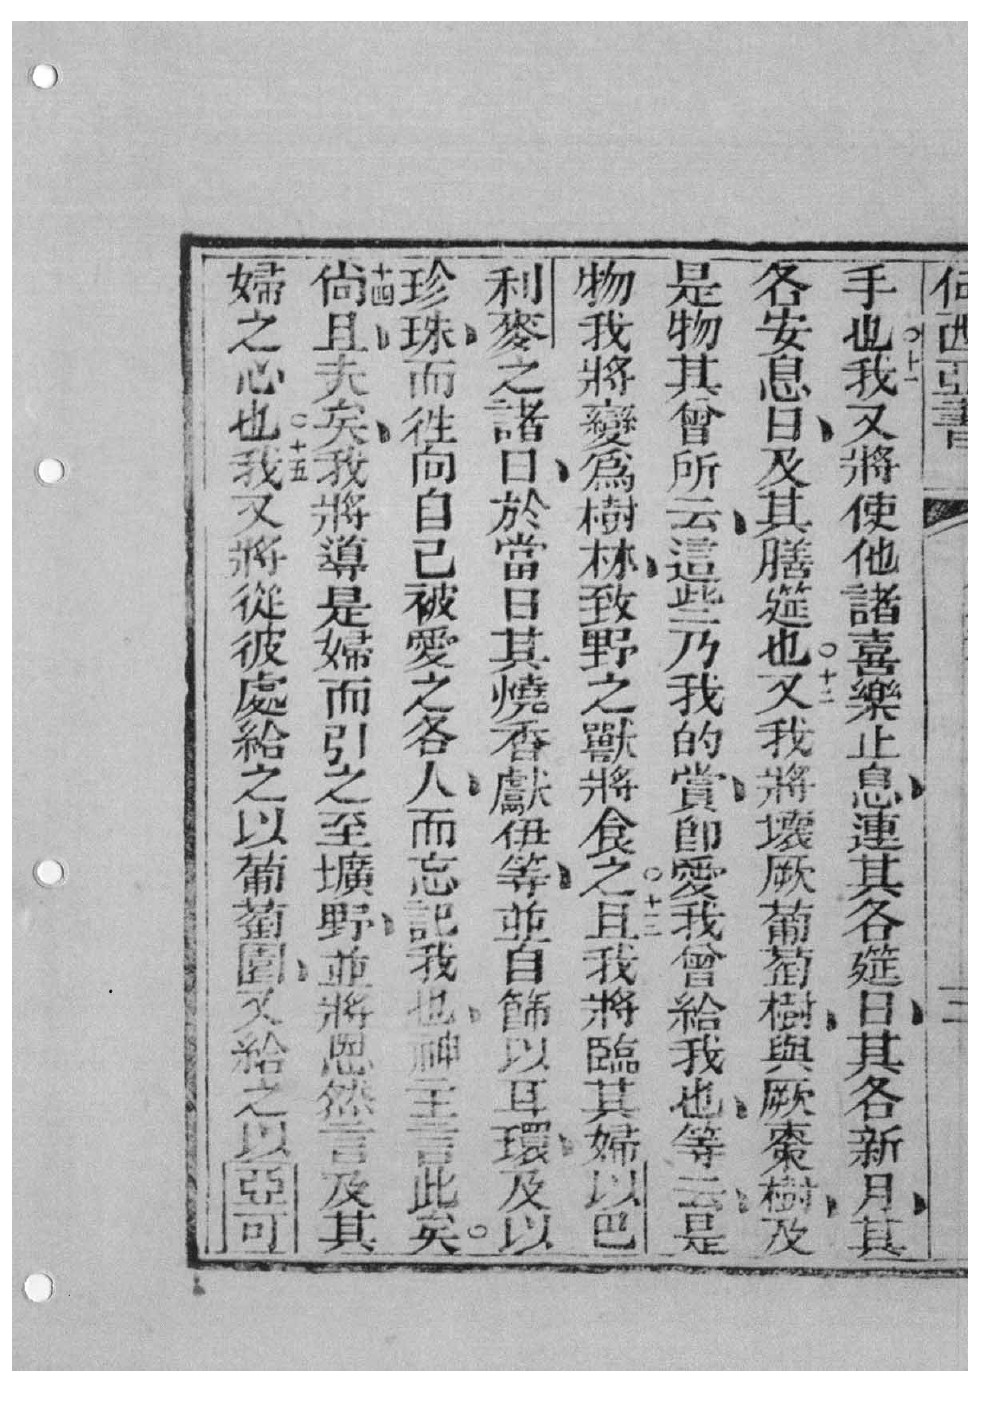 何西亞書 二
手也○十一我又將使他諸喜樂止息連其各筵日其各新月其
各安息日及其膳筵也○十二又我將壞厥葡萄樹與厥棗樹及
是物其曾所云這些乃我的賞卽愛我曾給我也等云是
物我將變爲樹林致野之獸將食之○十三且我將臨其婦以巴
利麥之諸日於當日其燒香獻伊等並自飾以耳環及以
珍珠而徃向自己被愛之各人而忘記我也神主言此矣○
十四尙且夫矣我將導是婦而引之至壙野並將恩然言及其
婦之心也○十五我又將從彼處給之以葡萄園又給之以亞可